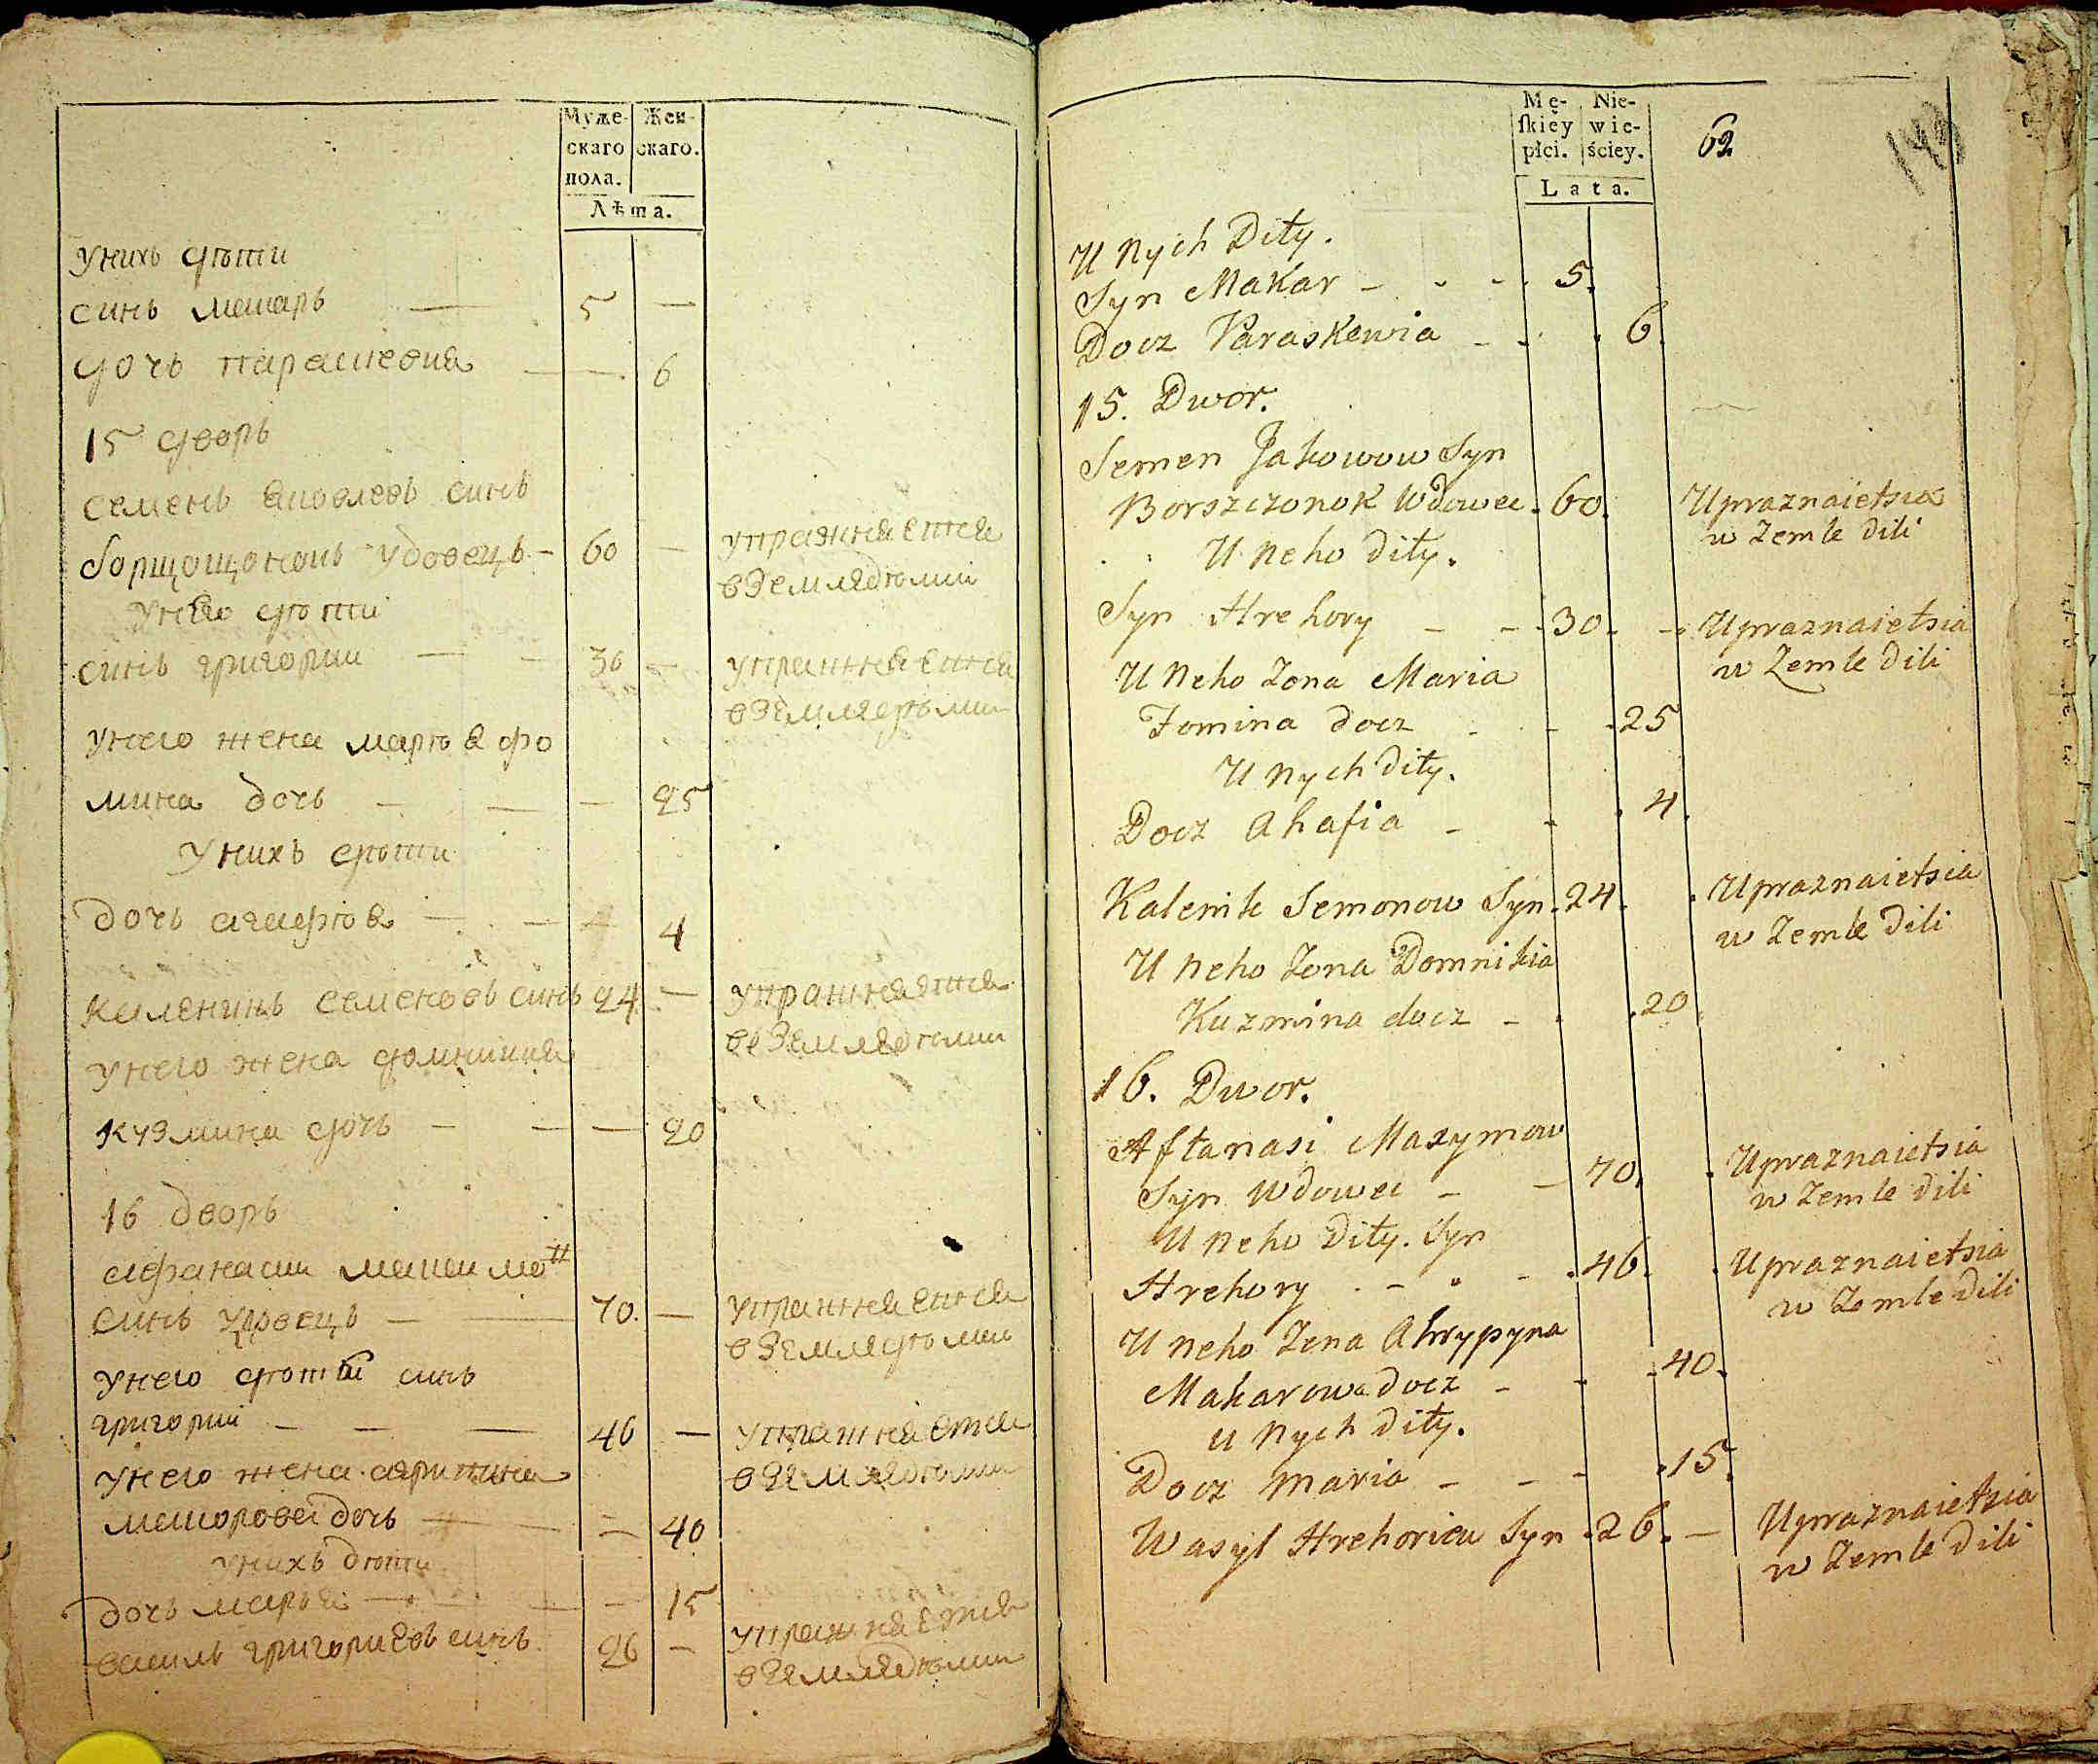 Муже-
скаго
пола.
Жен-
скаго.
Лѣта.
унихь дѣти
синь макаръ — 5 —
дочь параскевия — 6
15 дворь
семень яковлевь синь
борщощонокь удовець - 60 — упражняется
вземлядѣлии
унего дѣти
синь григории — - 30 — упражняется
вземлядѣлии
унего жена марѣя фо
мина дочь — — — 25
унихь дѣти
дочь агафѣя — — — 4
каленикь семеновь синь 24 — упражняятся
ве землядѣлии
унего жена домникия
кузмина дочь — — — 20
16 дворь
афанасии максимо
синь удовець — — 70. — упражняется
вземлядѣлии
унего дѣти синь
григории — — — 46 — упражняется
вземлядѣлии
унего жена агрипина
макорова дочь — — — 40
унихь дѣти
дочь марья — — — 15
василь григориевь синь 26 — упражняется
вземлядѣлии
Mę-
skiey
płci.
Nie-
wie-
ściey.
Lata.
62
149
U Nych Dity.
Syn Makar - - - 5.
Docz Paraskewia - - . 6.
15. Dwor.
Semen Jakowow Syn
Borszczonok Wdowec . 60. Upraznaietsia
w Zemle dili
U neho dity.
Syn Hrehory - - . 30. - Upraznaietsia
w Zemle dili
U Neho Zona Maria
Fomina docz - - . 25
U nych dity.
Docz Ahafia - - . 4.
Kalenik Semonow Syn . 24. . Upraznaietsia
w Zemle dili
U neho Zona Domnikia
Kuzmina docz - . . 20.
16. Dwor.
Aftanasi Maxymow
Syn Wdowec - - 70. . Upraznaietsia
w Zemle dili
U neho Dity. Syn
Hrehory . - . - . 46. . Upraznaietsia
w Zemle dili
U neho Zona Ahrypyna
Makarowa docz - - . 40.
U Nych dity.
Docz Maria - - - . 15.
Wasyl Hrehoriew Syn . 26. - Upraznaietsia
w Zemle dili